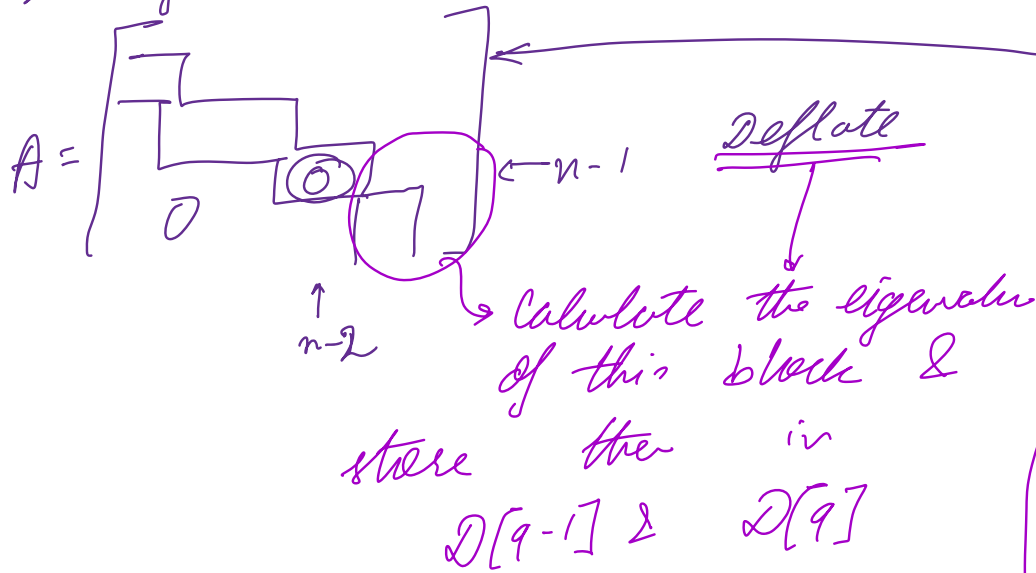 A =
0
0
← n-1
↑
n-2
Deflate
Calculate the eigenvalu
of this block &
store then in
D[q-1] & D[q]